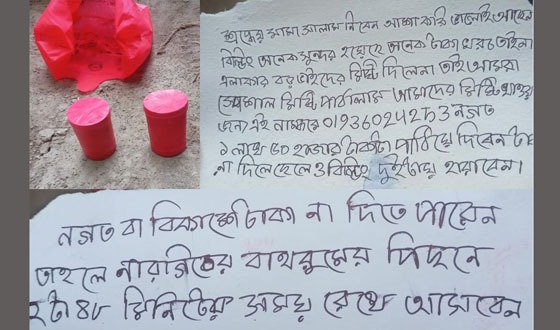 শ্রদ্ধেয় মামা সালাম নিবেন আশা করি ভালোই আছেন
বিল্ডিং অনেক সুন্দর হয়েছে অনেক টাকা খরচ তাইনা
এলাকার বড় ভাইদের মিষ্টি দিলেনা তাই আমরা
স্পেশাল মিষ্টি পাঠালাম আমাদের মিষ্টি খাওয়ার
জন্য এই নাম্বারে 01936024253 নগত
১ লাখ ৫০ হাজার টাকাটা পাঠিয়ে দিবেন টাকা
না দিলে ছেলে ও বিল্ডিং দুইটায় হারাবেন।
নগত বা বিকাশে টাকা না দিতে পারেন
তাহলে নারগিসের বাথরুমের পিছনে
২টা ৪৮ মিনিটের সময় রেখে আসবেন